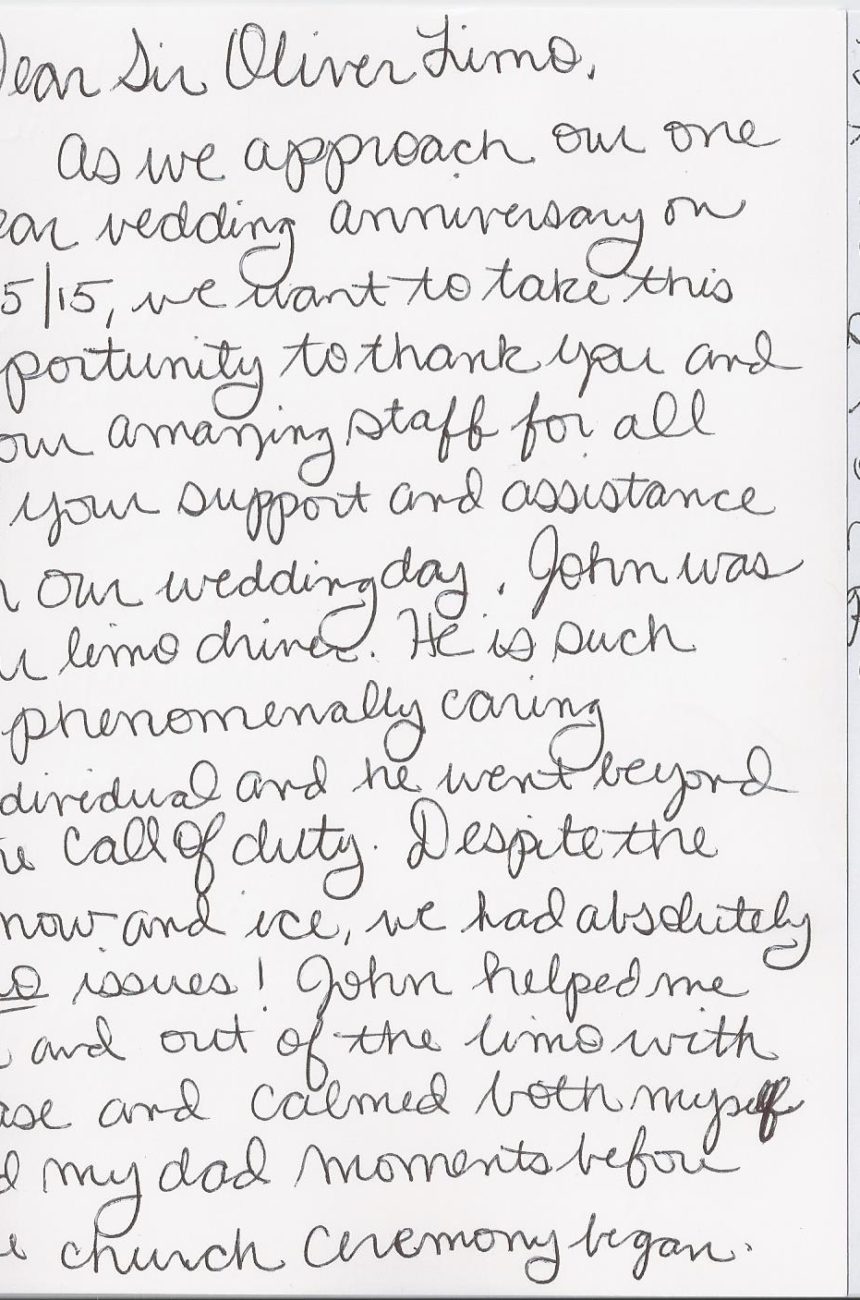 Dear Sir Oliver Limo,
As we approach our one
ear wedding anniversary on
5/15, we want to take this
portunity to thank you and
our amazing staff for all
your support and assistance
n our wedding day. John was
ur limo driver. He is such
phenomenally caring
dividual and he went beyond
he call of duty. Despite the
now and ice, we had absolutely
no issues! John helped me
and out of the limo with
ase and calmed both myself
d my dad moments before
e church ceremony began.